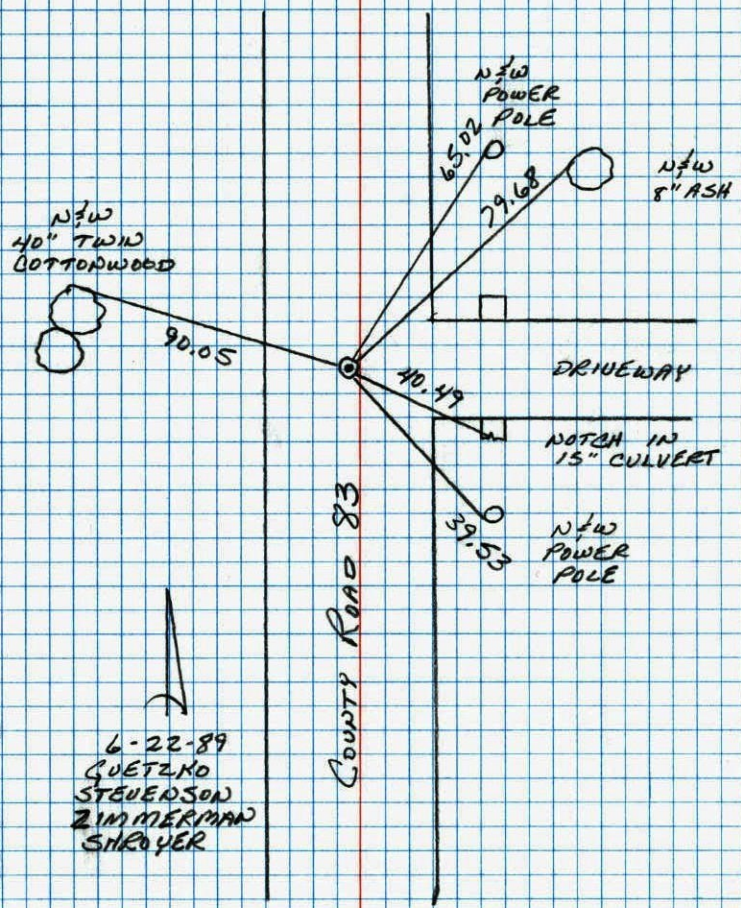 N&W
POWER
POLE
65.02
79.68
N&W
8" ASH
N&W
40" TWIN
COTTONWOOD
90.05
40.49
DRIVEWAY
NOTCH IN
15" CULVERT
39.53
N&W
POWER
POLE
COUNTY ROAD 83
6-22-89
GUETZKO
STEVENSON
ZIMMERMAN
SHROYER